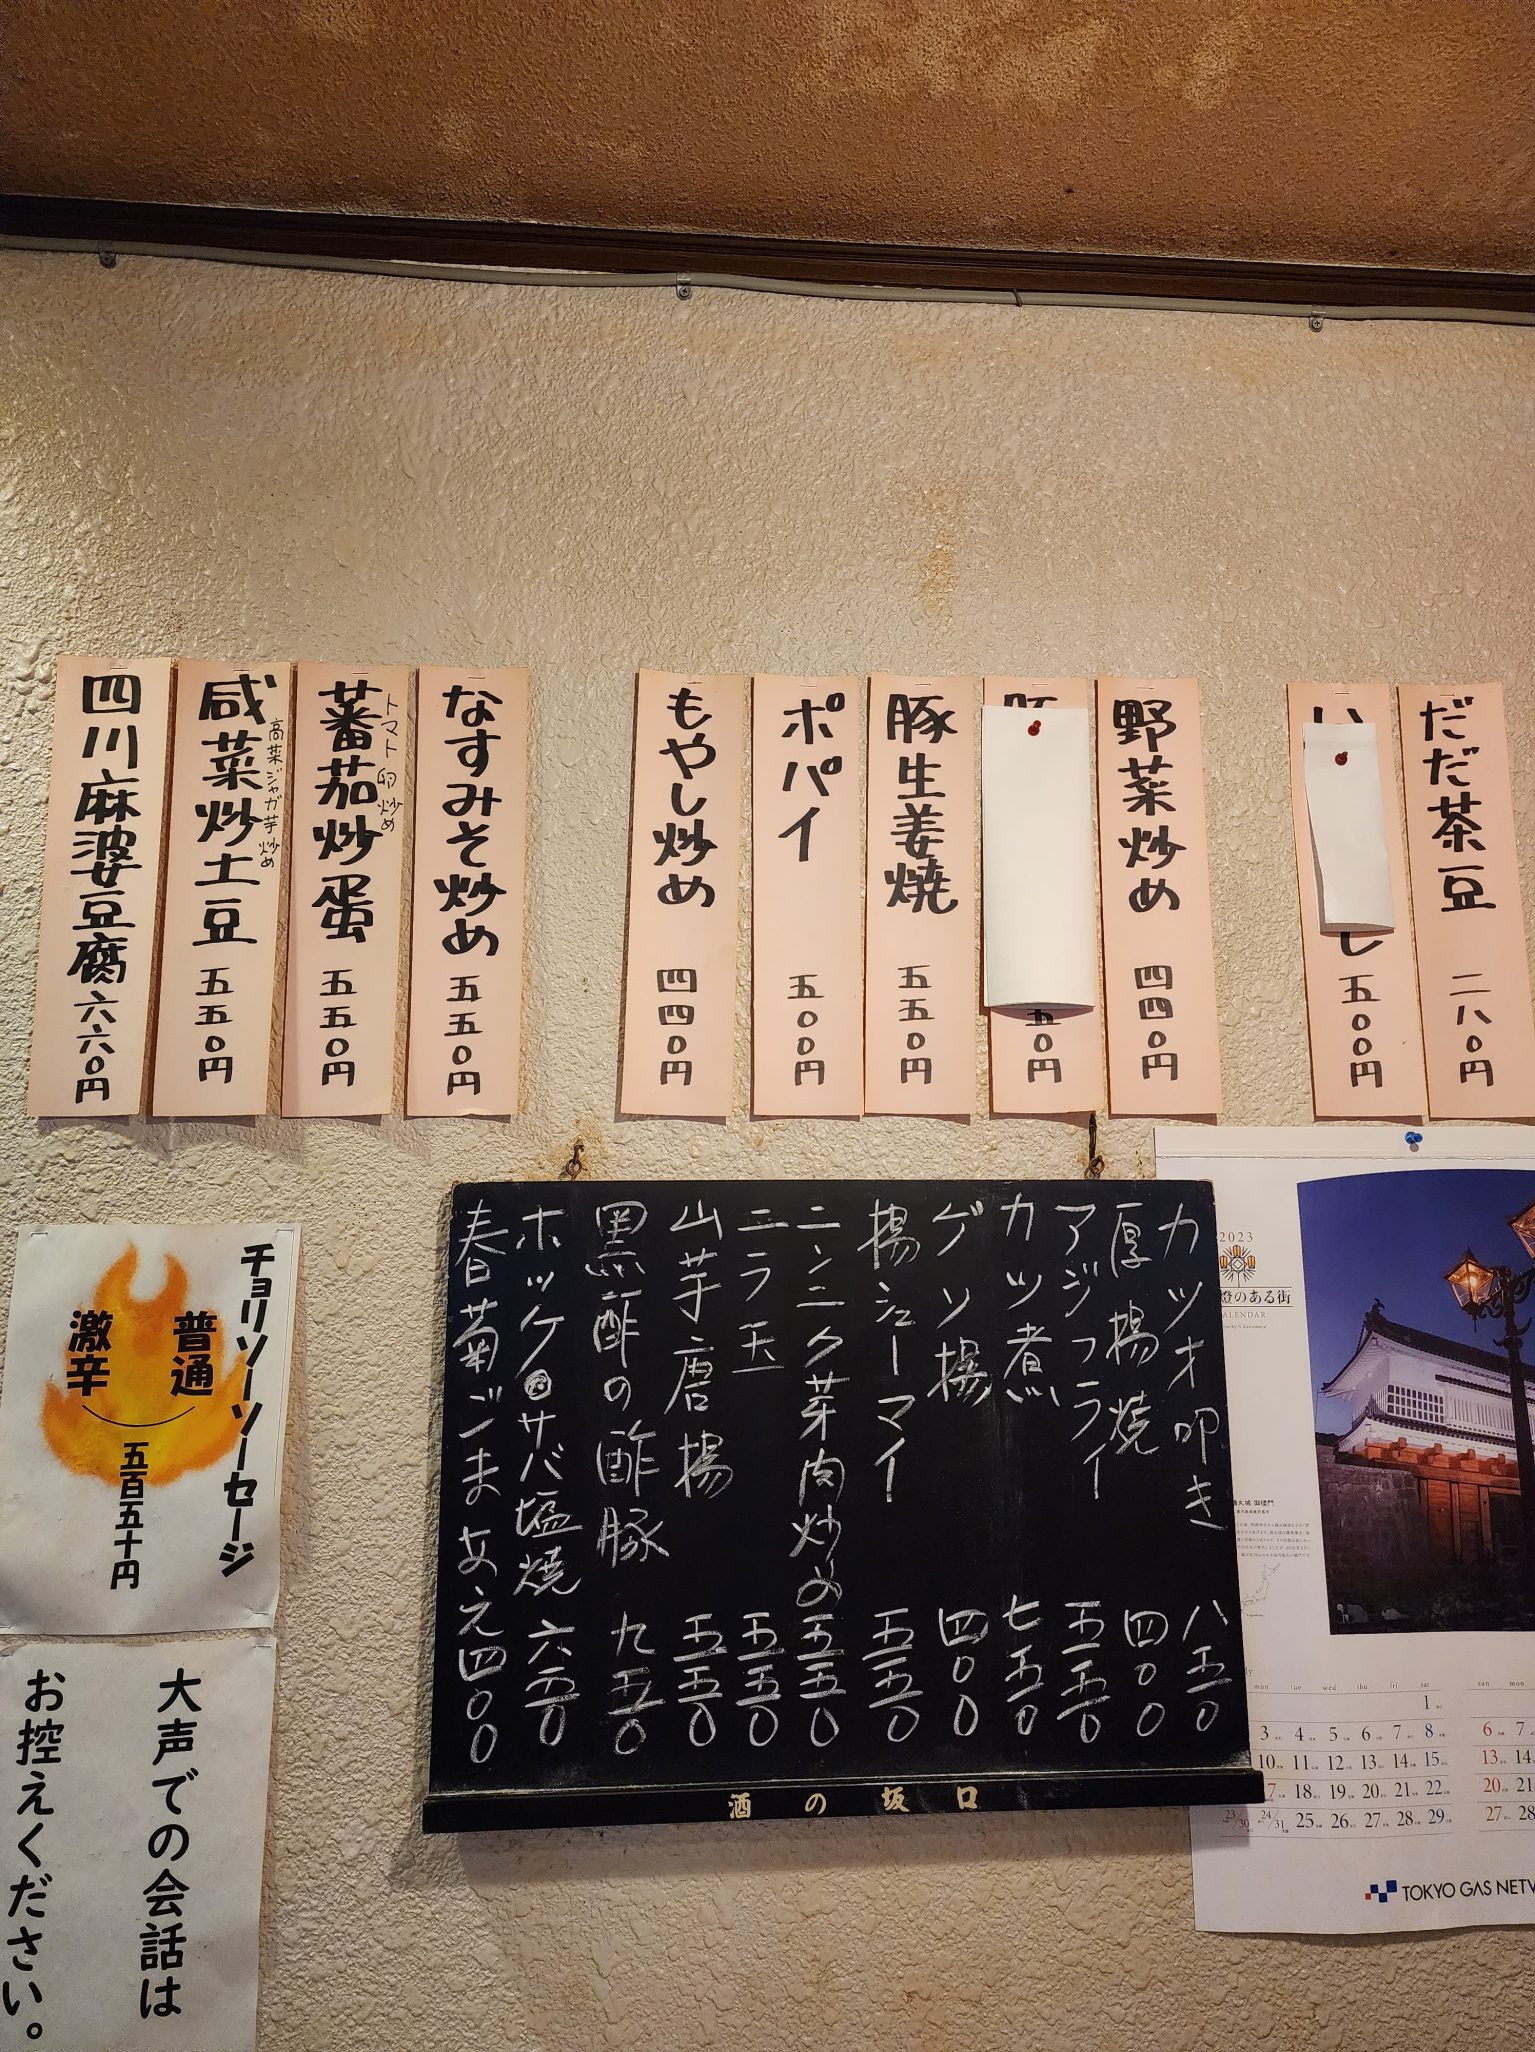 だだ茶豆 二八〇円
い し 五〇〇円
野菜炒め 四四〇円
豚 五〇円
豚生姜焼 五五〇円
ポパイ 五〇〇円
もやし炒め 四四〇円
なすみそ炒め 五五〇円
蕃茄炒蛋 五五〇円
トマト卵炒め
咸菜炒土豆 五五〇円
高菜ジャガ芋炒め
四川麻婆豆腐 六六〇円
カツオ叩き 八五〇
厚揚焼 四〇〇
アジフライ 五五〇
カツ煮 七五〇
ゲソ揚 四〇〇
揚シューマイ 五五〇
ニンニク芽肉炒め 五五〇
ニラ玉 五五〇
山芋唐揚 五五〇
黒酢の酢豚 九五〇
ホッケ サバ塩焼 六五〇
春菊ごまあえ 四〇〇
酒の坂口
チョリソーソーセージ
普通
激辛
五百五十円
大声での会話は
お控えください。
2023
燈のある街
CALENDAR
mon tue wed thu fri sat
1
3 4 5 6 7 8
10 11 12 13 14 15
17 18 19 20 21 22
23/30 24/31 25 26 27 28 29
sun mon
6 7
13 14
20 21
27 28
TOKYO GAS NETW